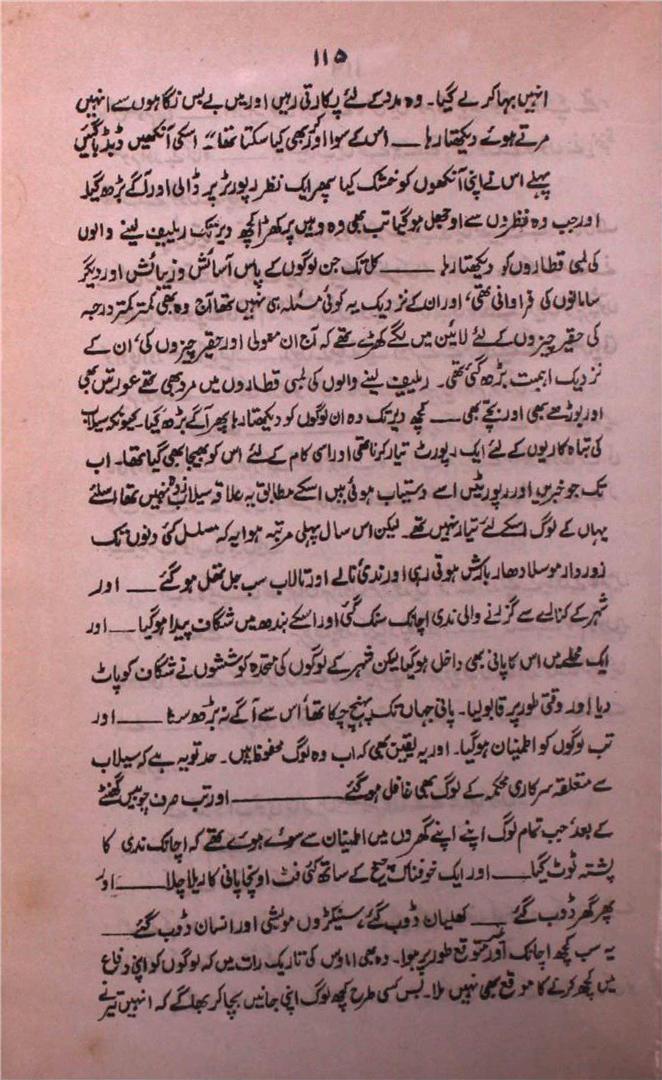 ۱۱۵
انہیں بہا کر لے گیا۔ وہ مدد کے لئے پکارتی رہیں اور میں بے بس نگاہوں سے انہیں
مرتے ہوئے دیکھتا رہا ــــ اس کے سوا اور بھی کیا سکتا تھا" اسکی آنکھیں ڈبڈبا گئیں
پہلے اس نے اپنی آنکھوں کو خشک کیا پھر ایک نظر رپورٹر پر ڈالی اور آگے بڑھ گیا۔
اور جب وہ نظروں سے اوجھل ہو گیا تب بھی وہ وہیں پر کھڑا کچھ دیر تک ریلیف لینے والوں
کی لمبی قطاروں کو دیکھتا رہا ــــــــ کل تک جن لوگوں کے پاس آسائش و زیبائش اور دیگر
سامانوں کی فراوانی تھی، اور ان کے نزدیک یہ کوئی مسئلہ ہی نہیں تھا آج وہ بھی کمتر کمتر درجہ
کی حقیر چیزوں کے لئے لائین میں لگے کھڑے تھے کہ آج ان معمولی اور حقیر چیزوں کی، ان کے
نزدیک اہمیت بڑھ گئی تھی۔ ریلیف لینے والوں کی لمبی قطاروں میں مرد بھی تھے عورتیں بھی
اور بوڑھے بھی اور بچے بھی ــــ کچھ دیر تک وہ ان لوگوں کو دیکھتا رہا پھر آگے بڑھ گیا۔ کیونکہ سیلاب
کی تباہ کاریوں کے لئے ایک رپورٹ تیار کرنا تھی اور اسی کام کے لئے اس کو بھیجا بھی گیا تھا۔ اب
تک جو خبریں اور رپورٹیں اسے دستیاب ہوئی ہیں اسکے مطابق یہ علاقہ سیلاب زدہ نہیں تھا اسلئے
یہاں کے لوگ اسکے لئے تیار نہیں تھے۔ لیکن اس سال پہلی مرتبہ ہوا یہ کہ مسلسل کئی دنوں تک
زور دار موسلا دھار بارش ہوتی رہی اور ندی نالے اور تالاب سب جل تھل ہو گئے ــــ اور
شہر کے کنارے سے گزرنے والی ندی اچانک سنک گئی اور اسکے بندھ میں شگاف پیدا ہو گیا ــــ اور
ایک محلے میں اس کا پانی بھی داخل ہو گیا لیکن شہر کے لوگوں کی متحدہ کوششوں نے شگاف کو پاٹ
دیا اور وقتی طور پر قابو لیا۔ پانی جہاں تک پہنچ چکا تھا اس سے آگے نہ بڑھ سکا ــــــــ اور
تب لوگوں کو اطمینان ہو گیا۔ اور یہ یقین بھی کہ اب وہ لوگ محفوظ ہیں۔ حد تو یہ ہے کہ سیلاب
سے متعلقہ سرکاری محکمہ کے لوگ بھی غافل ہو گئے ــــــــــــ اور تب صرف چوبیس گھنٹے
کے بعد، جب تمام لوگ اپنے اپنے گھروں میں اطمینان سے سوئے ہوئے تھے کہ اچانک ندی کا
پشتہ ٹوٹ گیا ــــ اور ایک خوفناک چیخ کے ساتھ کئی فٹ اونچا پانی کا ریلا چلا ــــــــ اور
پھر گھر ڈوب گئے ــــ کھلیان ڈوب گئے، سینکڑوں مویشی اور انسان ڈوب گئے ــــــــ
یہ سب کچھ اچانک اور غیر متوقع طور پر ہوا۔ وہ بھی اماوس کی تاریک رات میں کہ لوگوں کو اپنی دفاع
میں کچھ کرنے کا موقع بھی نہیں ملا۔ بس کسی طرح کچھ لوگ اپنی جانیں بچا کر بھاگے کہ انہیں تیرنے